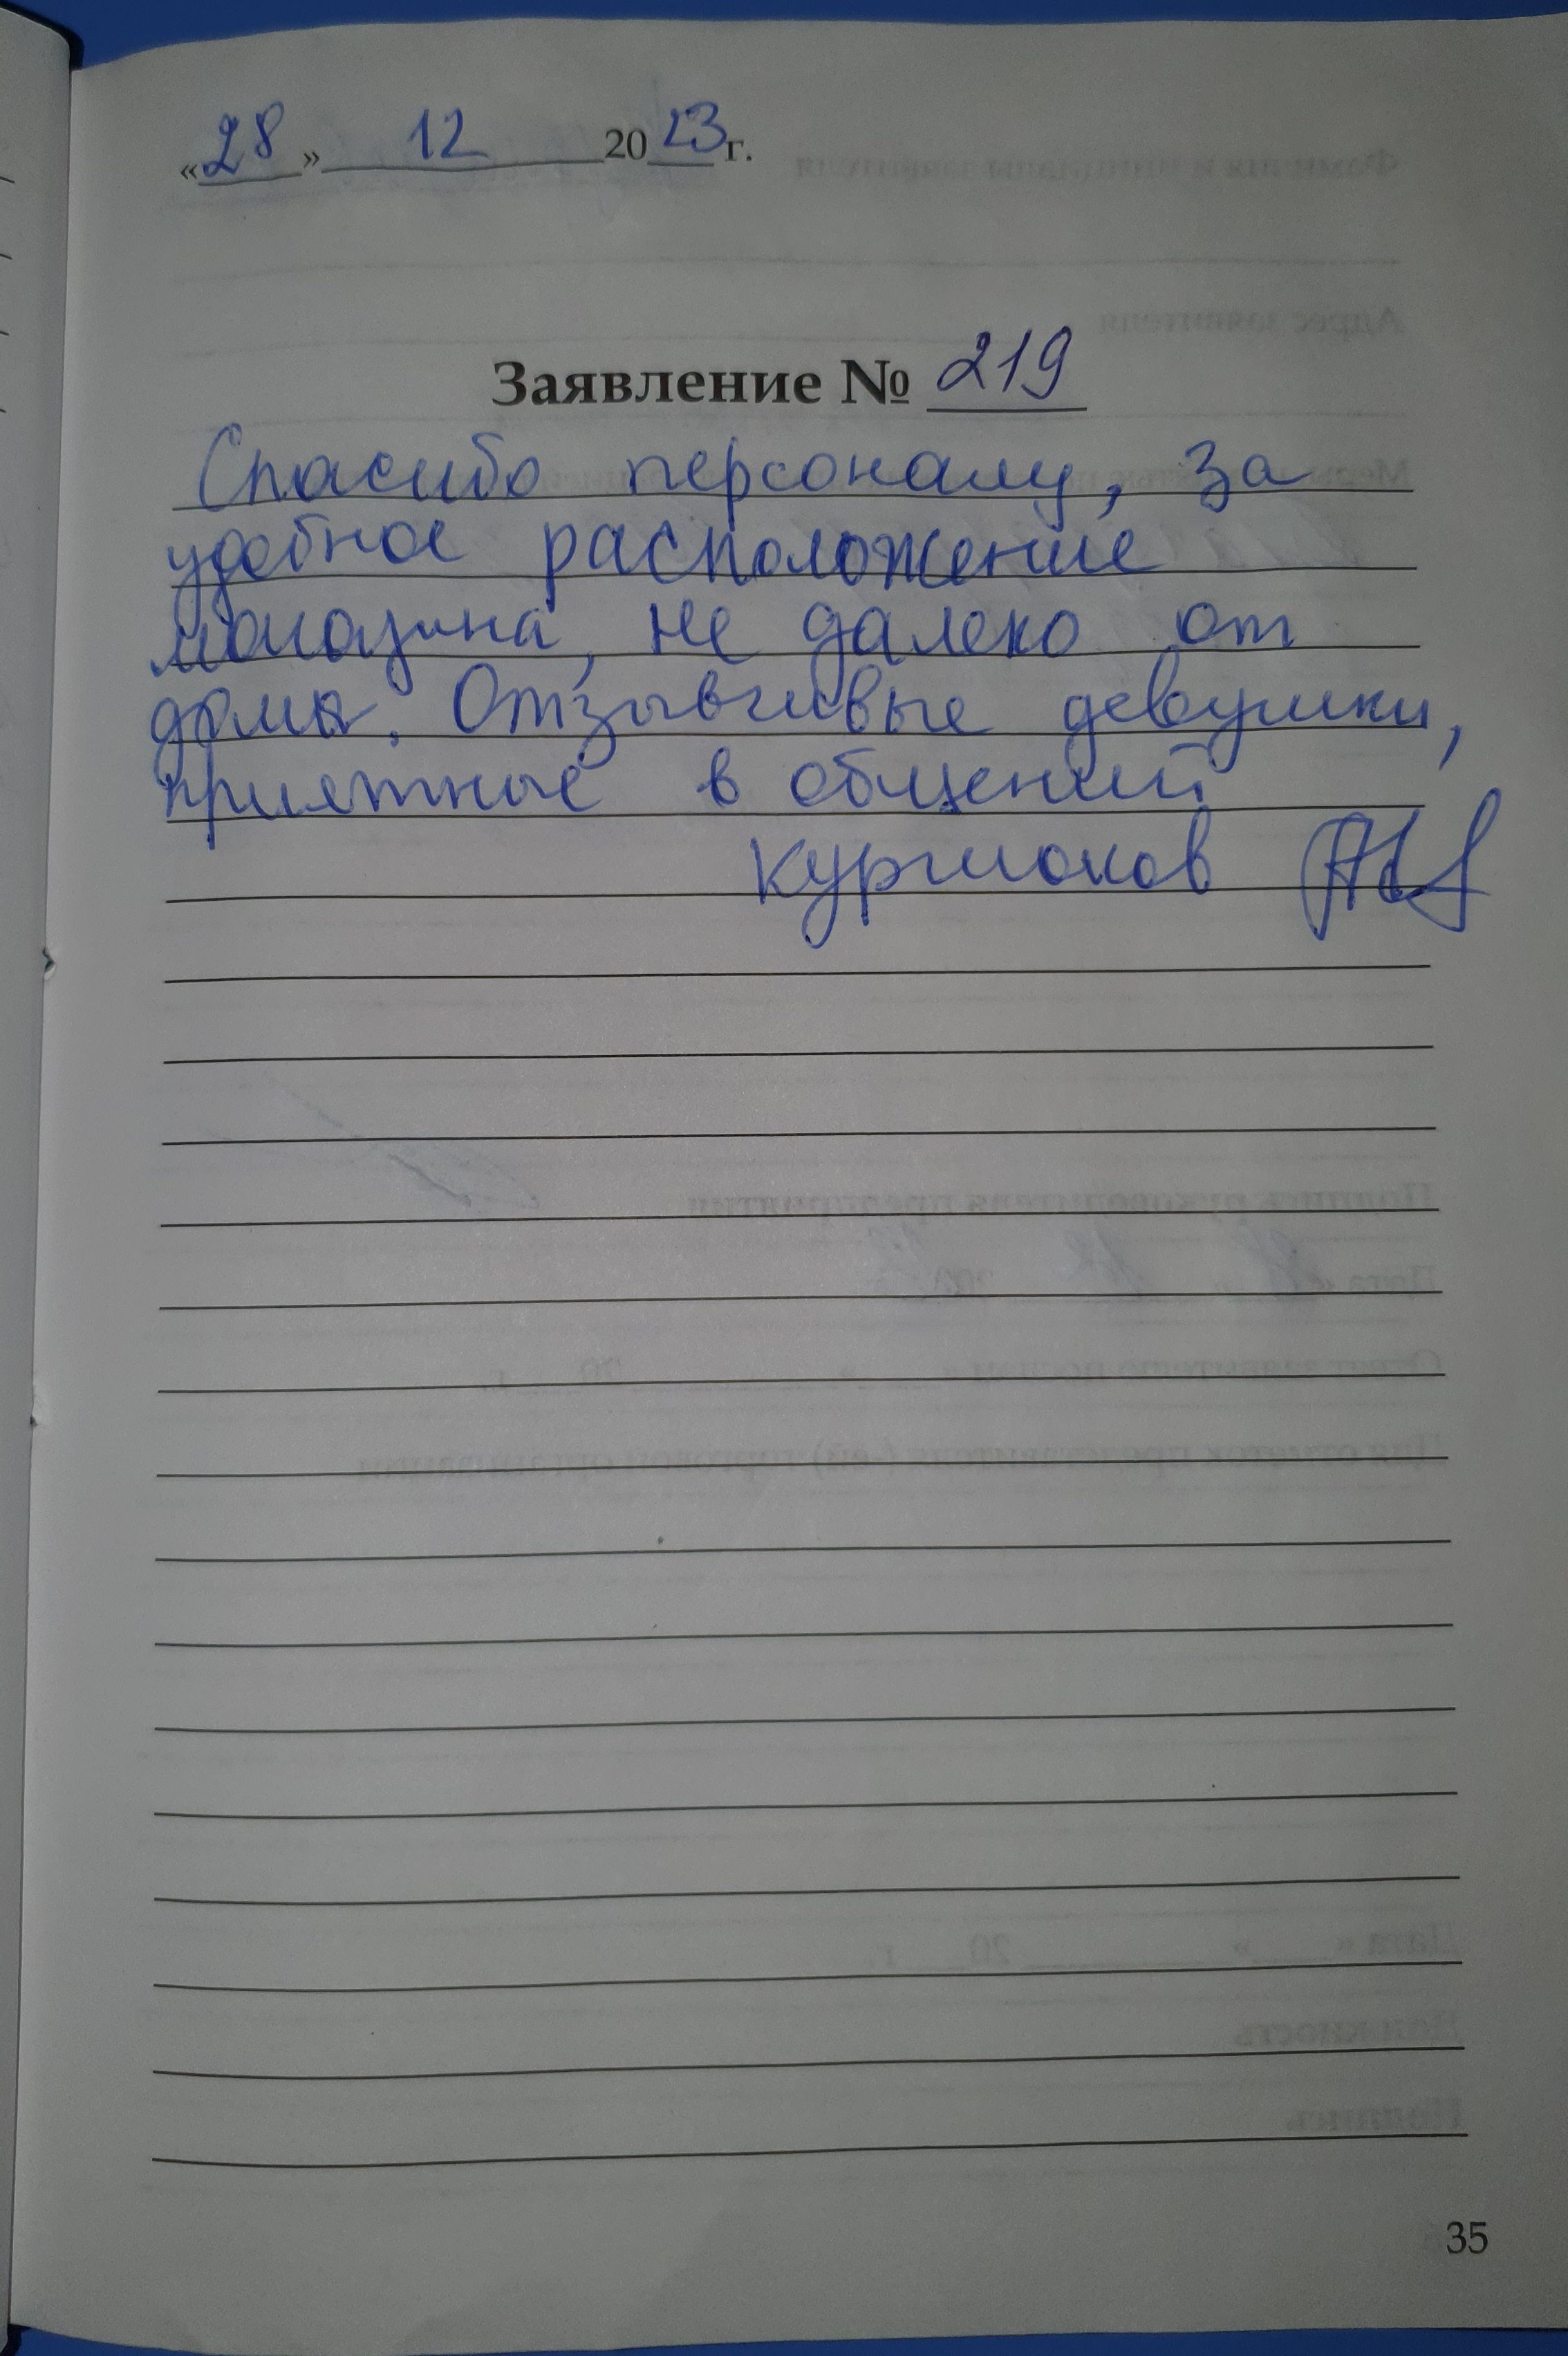 «28» 12 2023 г.
Заявление № 219
Спасибо персоналу, за
удобное расположение
магазина, не далеко от
дома. Отзывчивые девушки,
приятные в общений
35